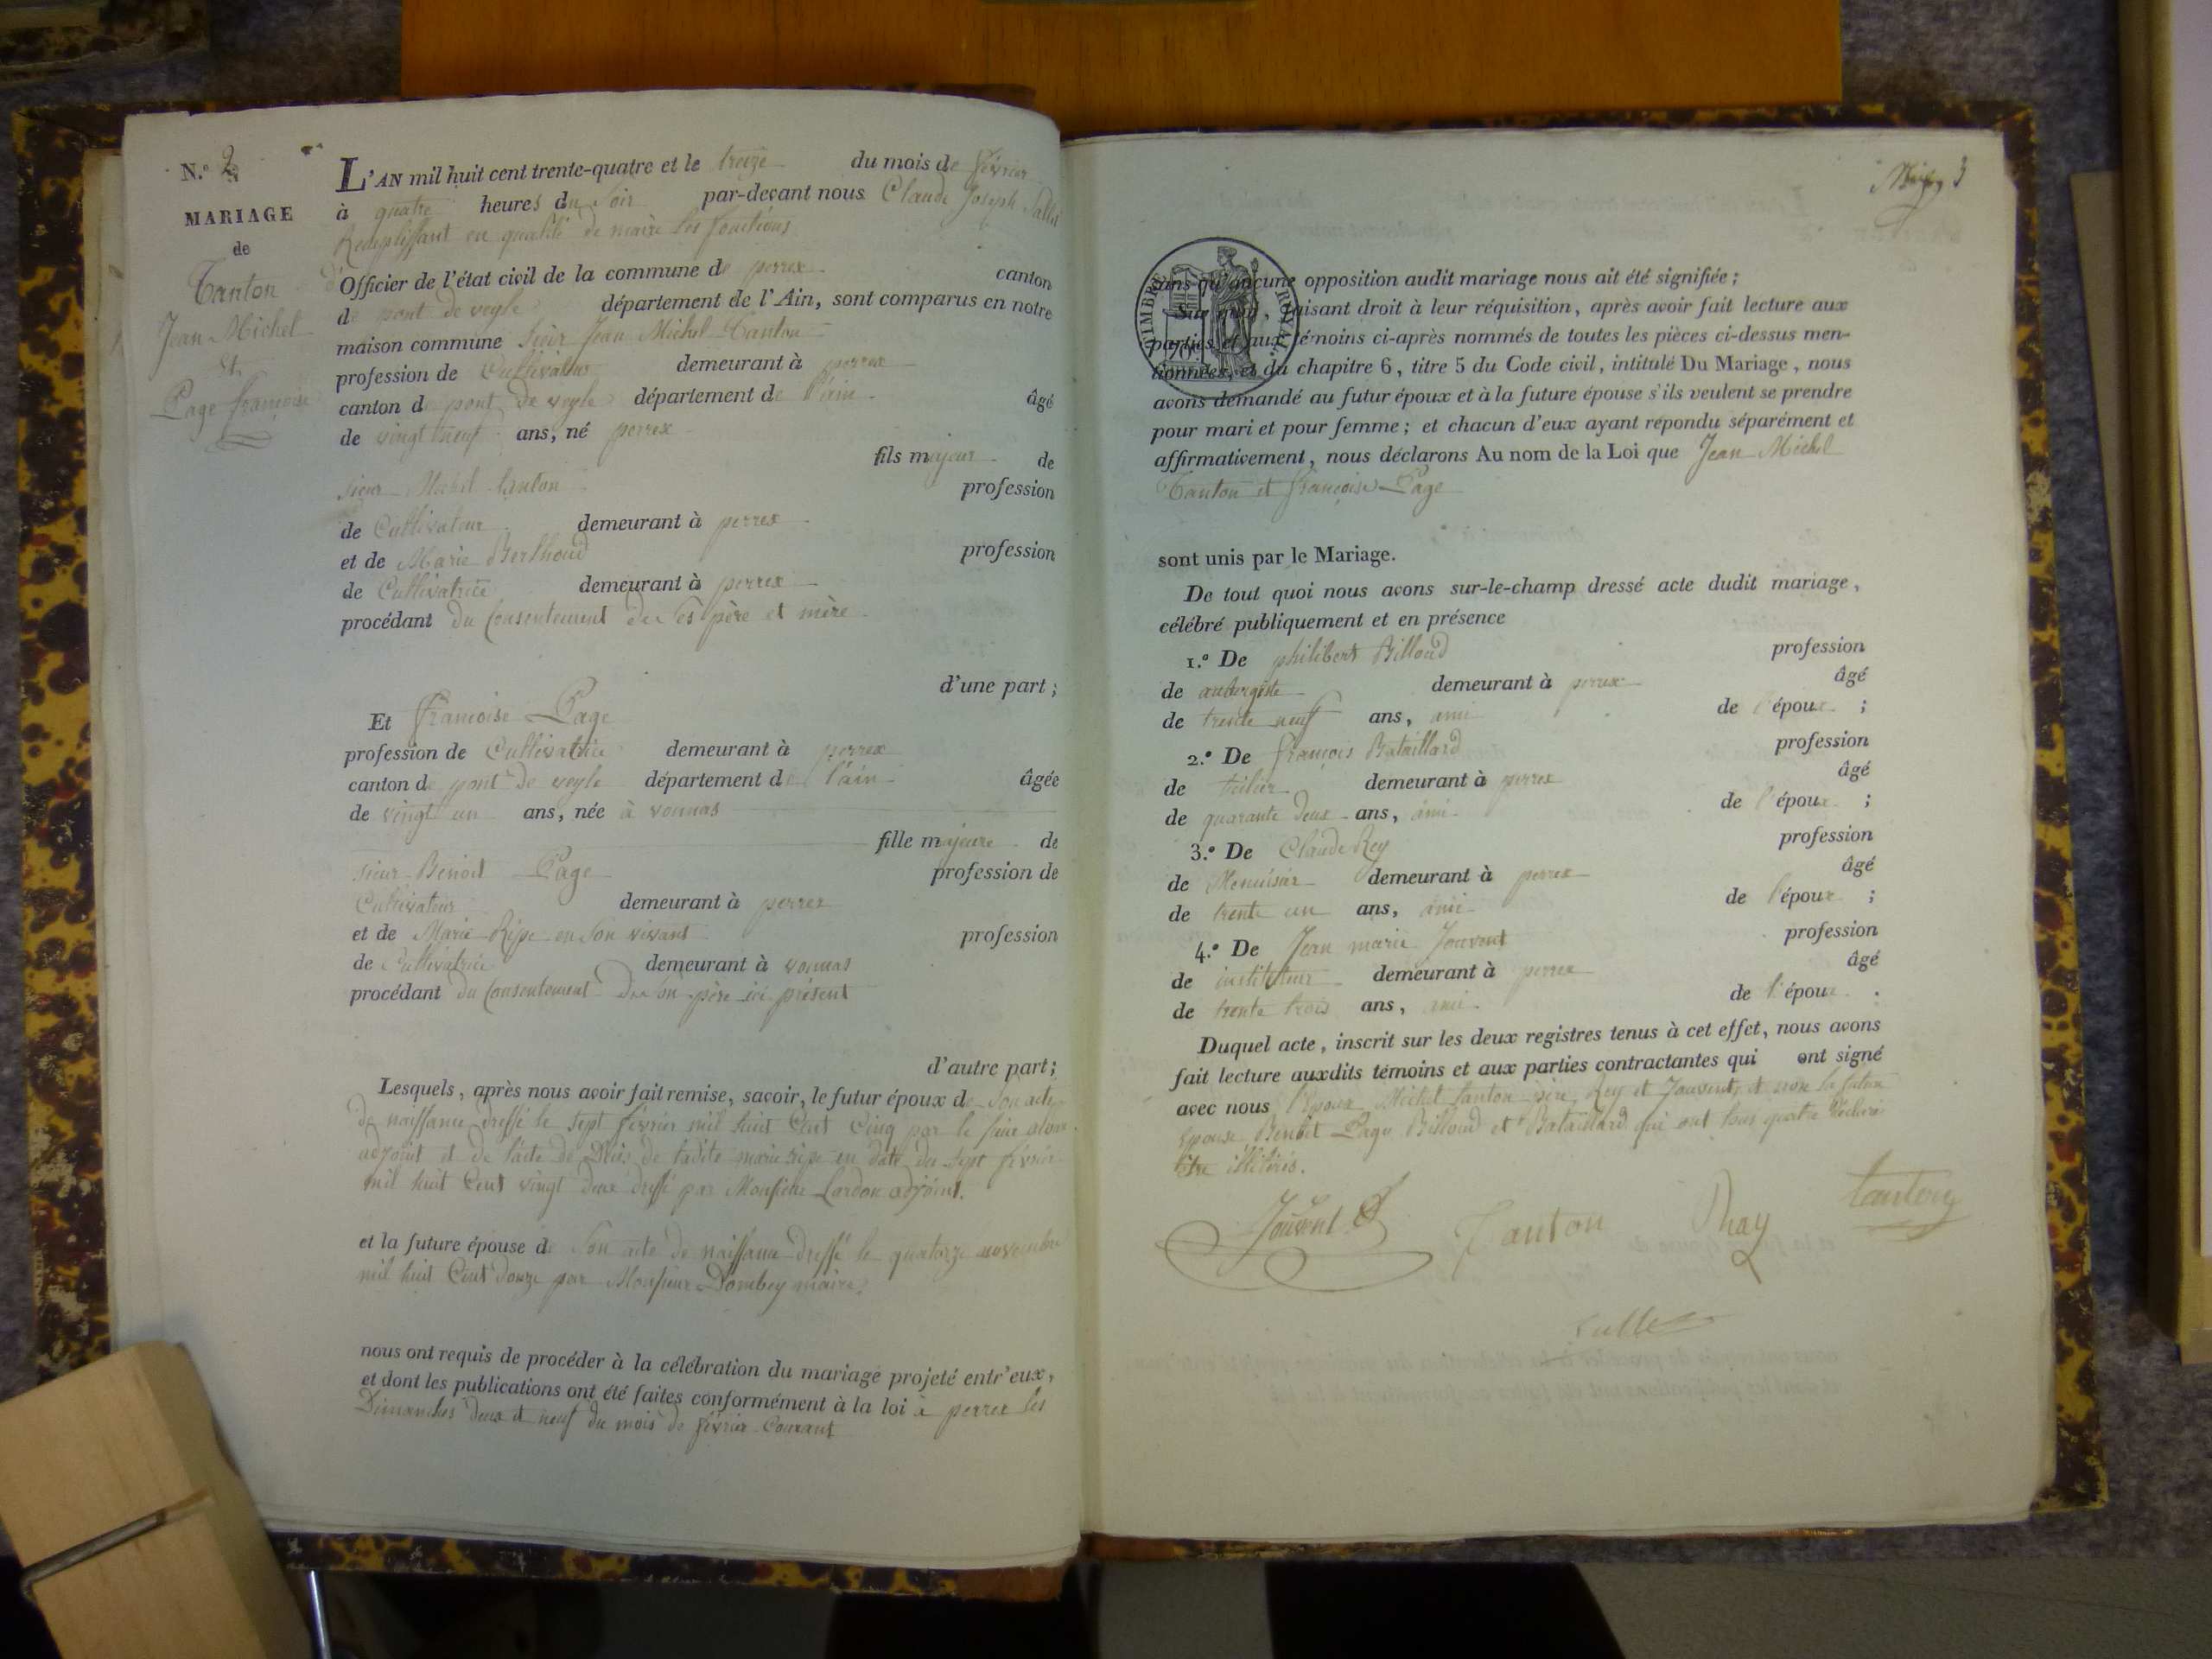 N.° 2
MARIAGE
de
Tanton
Jean Michel
et
Page françoise
L'AN mil huit cent trente-quatre et le treize du mois de février
à quatre heures du soir par-devant nous Claude Joseph
Remplissant en qualité de maire les fonctions
d'Officier de l'état civil de la commune de perrex canton
de pont de veyle département de l'Ain, sont comparus en notre
maison commune sieur Jean Michel Tanton
profession de Cultivateur demeurant à perrex
canton de pont de veyle département de l'ain âgé
de vingt neuf ans, né perrex
fils majeur de
sieur Michel Tanton profession
de Cultivateur demeurant à perrex
et de Marie Berthoud profession
de Cultivatrice demeurant à perrex
procédant du Consentement de ses père et mère
d'une part ;
Et françoise Page
profession de Cultivatrice demeurant à perrex
canton de pont de veyle département de l'ain âgée
de vingt un ans, née à vonnas
fille majeure de
sieur Benoit Page profession de
Cultivateur demeurant à perrex
et de Marie Ripe en son vivant profession
de Cultivatrice demeurant à vonnas
procédant du Consentement de son père ici présent
d'autre part;
Lesquels, après nous avoir fait remise, savoir, le futur époux de son acte
de naissance dressé le sept février mil huit Cent Cinq par le sieur alors
adjoint et de l'acte de Décès de ladite marie ripe en date du sept février
mil huit Cent vingt deux dressé par Monsieur Lardon adjoint.
et la future épouse de son acte de naissance dressé le quatorze novembre
mil huit Cent douze par Monsieur Dombey maire.
nous ont requis de procéder à la célébration du mariage projeté entr'eux,
et dont les publications ont été faites conformément à la loi à perrex les
Dimanches deux et neuf du mois de février Courant
3
TIMBRE ROYAL
70
sans qu'aucune opposition audit mariage nous ait été signifiée ;
Sur quoi, faisant droit à leur réquisition, après avoir fait lecture aux
parties et aux témoins ci-après nommés de toutes les pièces ci-dessus men-
tionnées, et du chapitre 6, titre 5 du Code civil, intitulé Du Mariage, nous
avons demandé au futur époux et à la future épouse s'ils veulent se prendre
pour mari et pour femme ; et chacun d'eux ayant répondu séparément et
affirmativement, nous déclarons Au nom de la Loi que Jean Michel
Tanton et françoise Page
sont unis par le Mariage.
De tout quoi nous avons sur-le-champ dressé acte dudit mariage,
célébré publiquement et en présence
1.° De philibert Billoud profession
de aubergiste demeurant à perrex âgé
de trente neuf ans, ami de l'époux ;
2.° De françois Bataillard profession
de tuilier demeurant à perrex âgé
de quarante deux ans, ami de l'époux ;
3.° De Claude Rey profession
de Menuisier demeurant à perrex âgé
de trente un ans, ami de l'époux ;
4.° De Jean marie Jouvent profession
de instituteur demeurant à perrex âgé
de trente trois ans, ami de l'époux .
Duquel acte, inscrit sur les deux registres tenus à cet effet, nous avons
fait lecture auxdits témoins et aux parties contractantes qui ont signé
avec nous l'époux Michel Tanton père, Rey et Jouvent, et non la future
épouse Benoit Page Billoud et Bataillard qui ont tous quatre déclaré
être illitérés.
Jouvent Tanton Rhay tanton